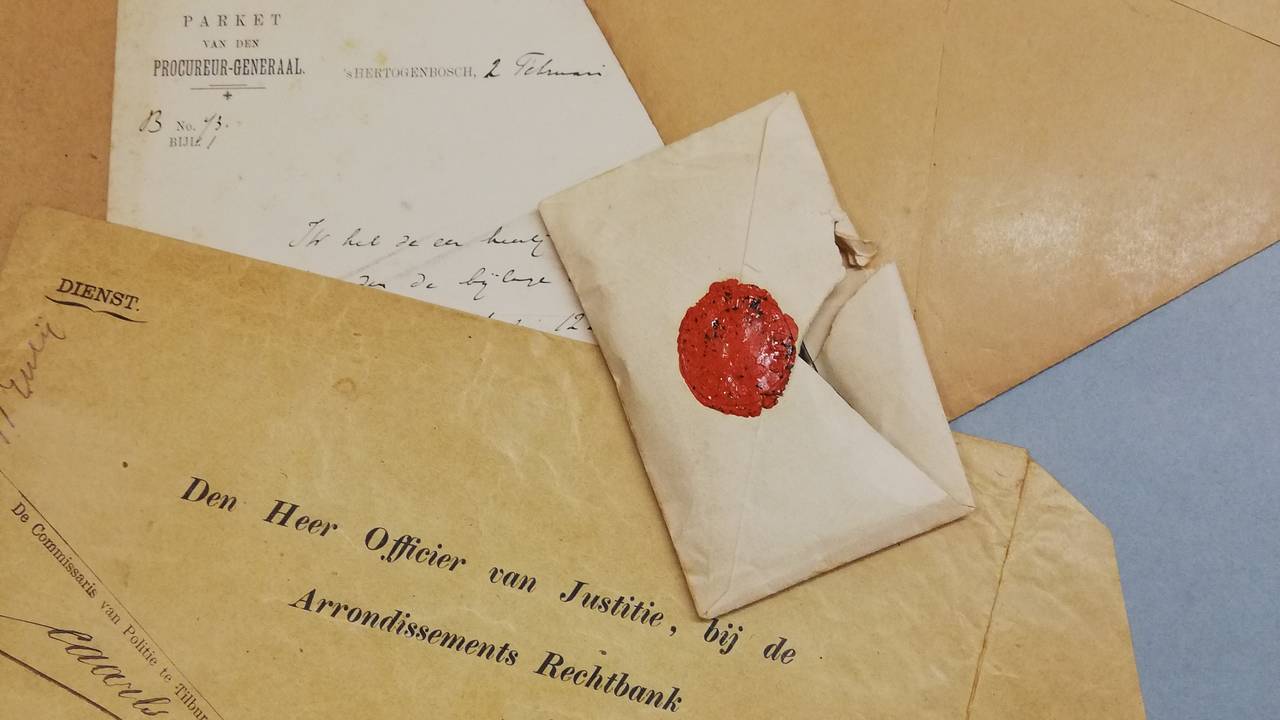 PARKET
VAN DEN
PROCUREUR-GENERAAL.
'sHERTOGENBOSCH, 2 Februari
B No. 73.
BIJL. 1
Ik heb de eer
de bijlage
12
DIENST.
Den Heer Officier van Justitie, bij de
Arrondissements Rechtbank
De Commissaris van Politie te Tilbur
Caarls